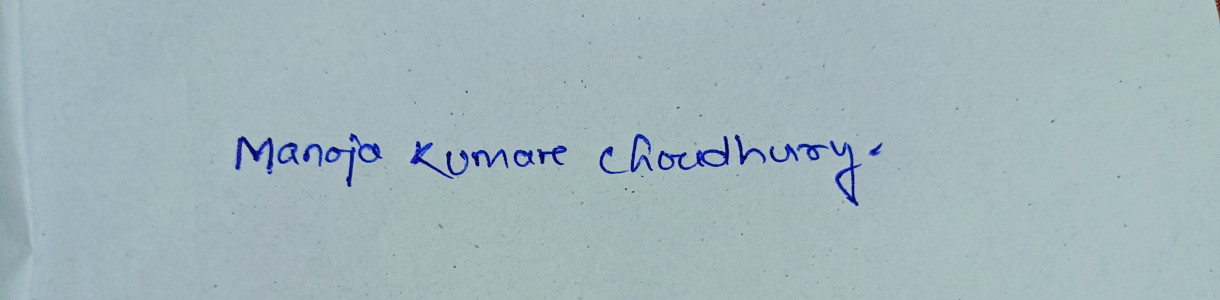 Manoja Kumar Choudhury.